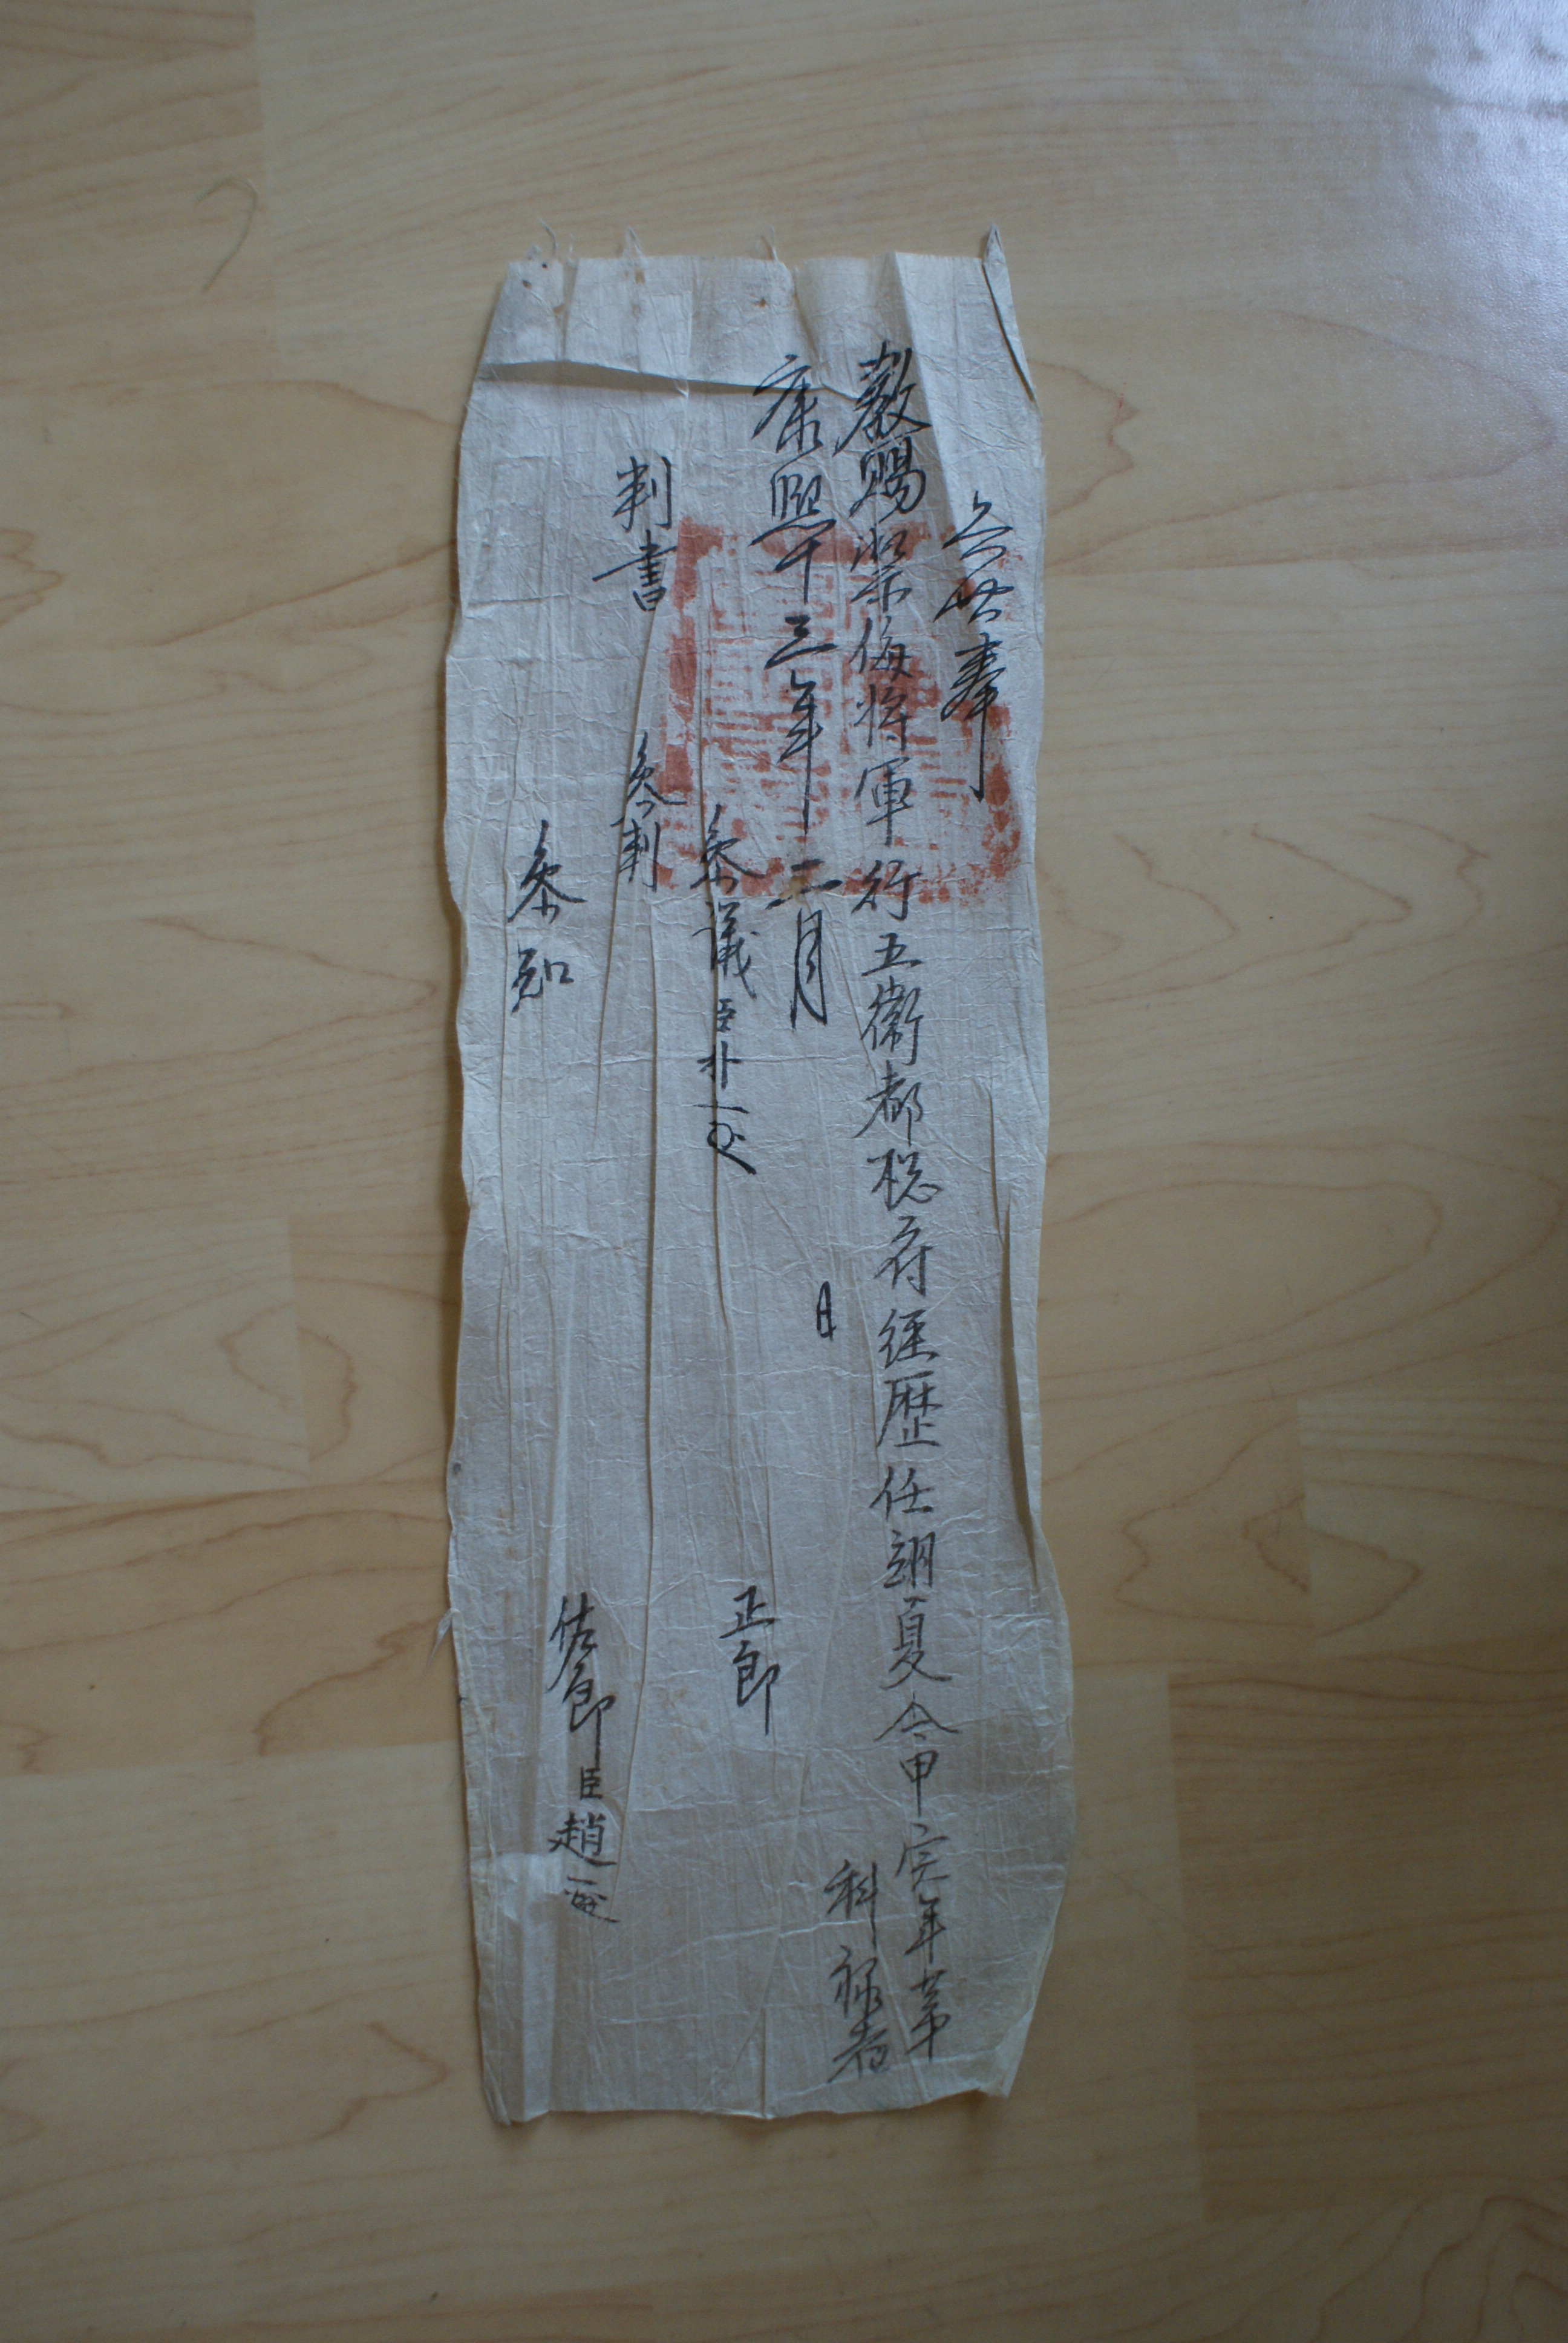 兵曹奉
教賜禦侮將軍行五衛都摠府經歷任翊夏今甲寅年第
科祿者
康熙十三年二月 日
參議臣朴 正郎
判書 參判
參知 佐郎臣趙